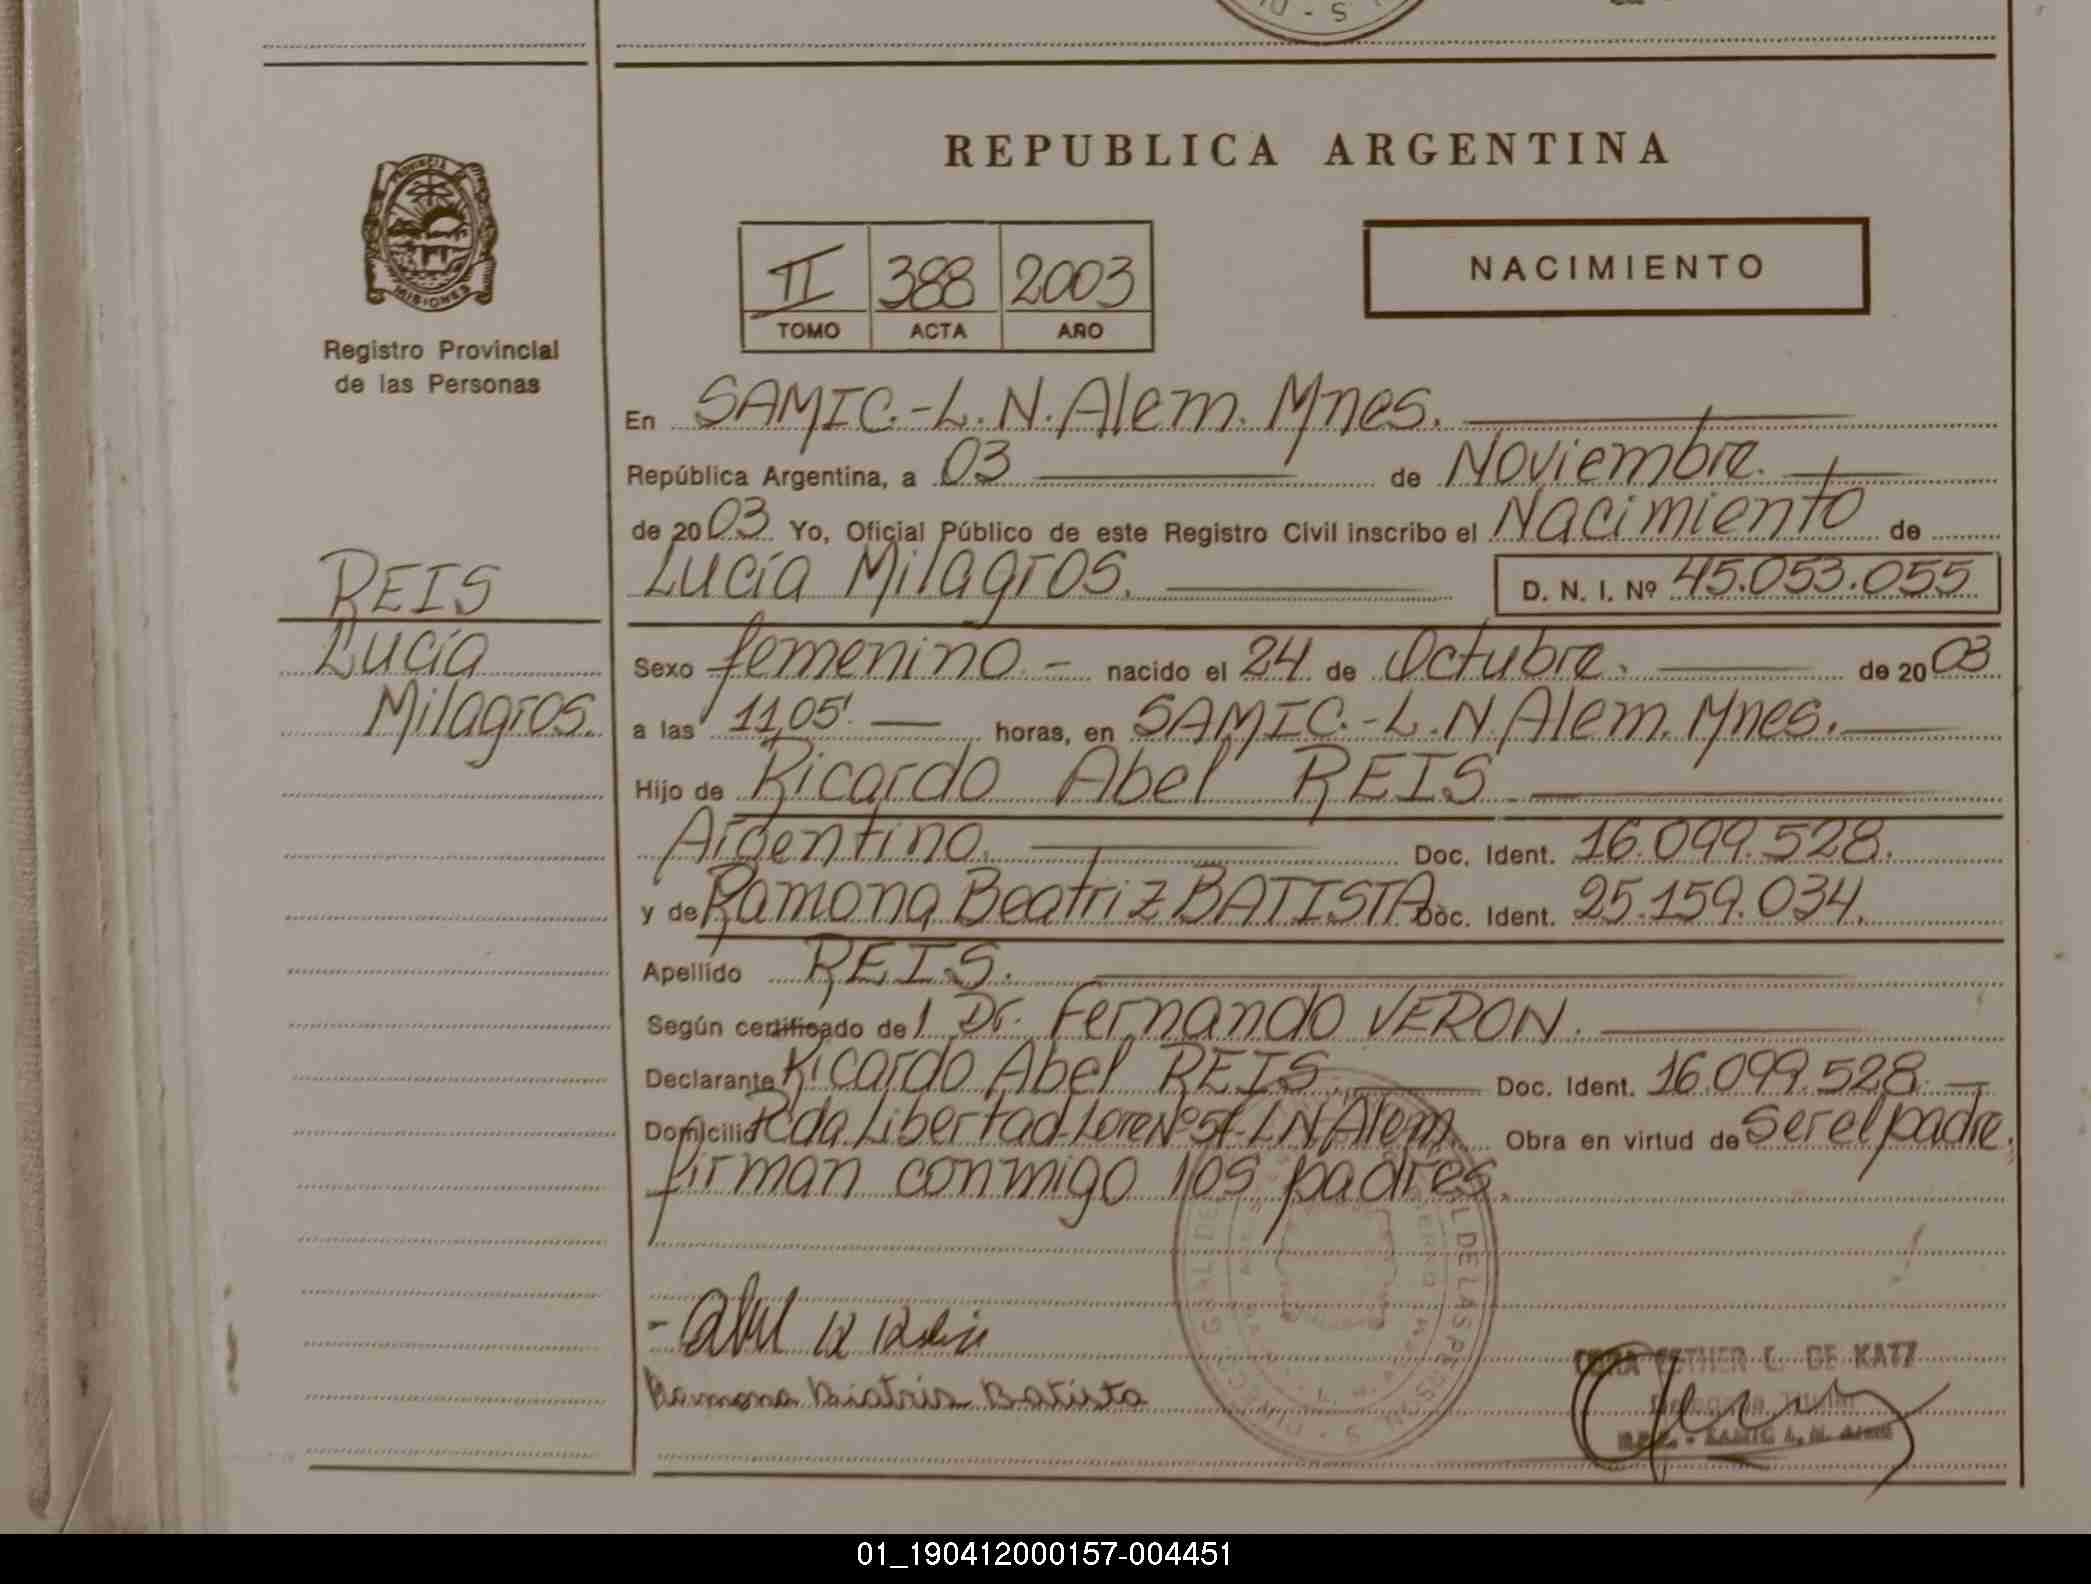 REPUBLICA ARGENTINA
PROVINCIA
MISIONES
Registro Provincial
de las Personas
II 388 2003
TOMO ACTA AÑO
NACIMIENTO
En SAMIC.-L.N.Alem.Mnes.
República Argentina, a 03 de Noviembre.
de 2003. Yo, Oficial Público de este Registro Civil inscribo el Nacimiento de
Lucía Milagros. D. N. I. Nº 45.053.055
REIS
Lucía
Milagros.
Sexo femenino.- nacido el 24 de Octubre. de 2003
a las 11,05'. horas, en SAMIC.-L.N.Alem.Mnes.
Hijo de Ricardo Abel REIS
Argentino. Doc. Ident. 16.099.528.
y de Ramona Beatriz BATISTA Doc. Ident. 25.159.034.
Apellido REIS.
Según certificado del Dr. Fernando VERON.
Declarante Ricardo Abel REIS. Doc. Ident. 16.099.528.
Domicilio Pcda.Libertad-Lote Nº51-L N Alem. Obra en virtud de ser el padre.
firman conmigo los padres.
Ramona Biatris Batista
ESTHER L. DE KATZ
SAMIC L. N. ALEM
DE LAS PERSON
01_190412000157-004451